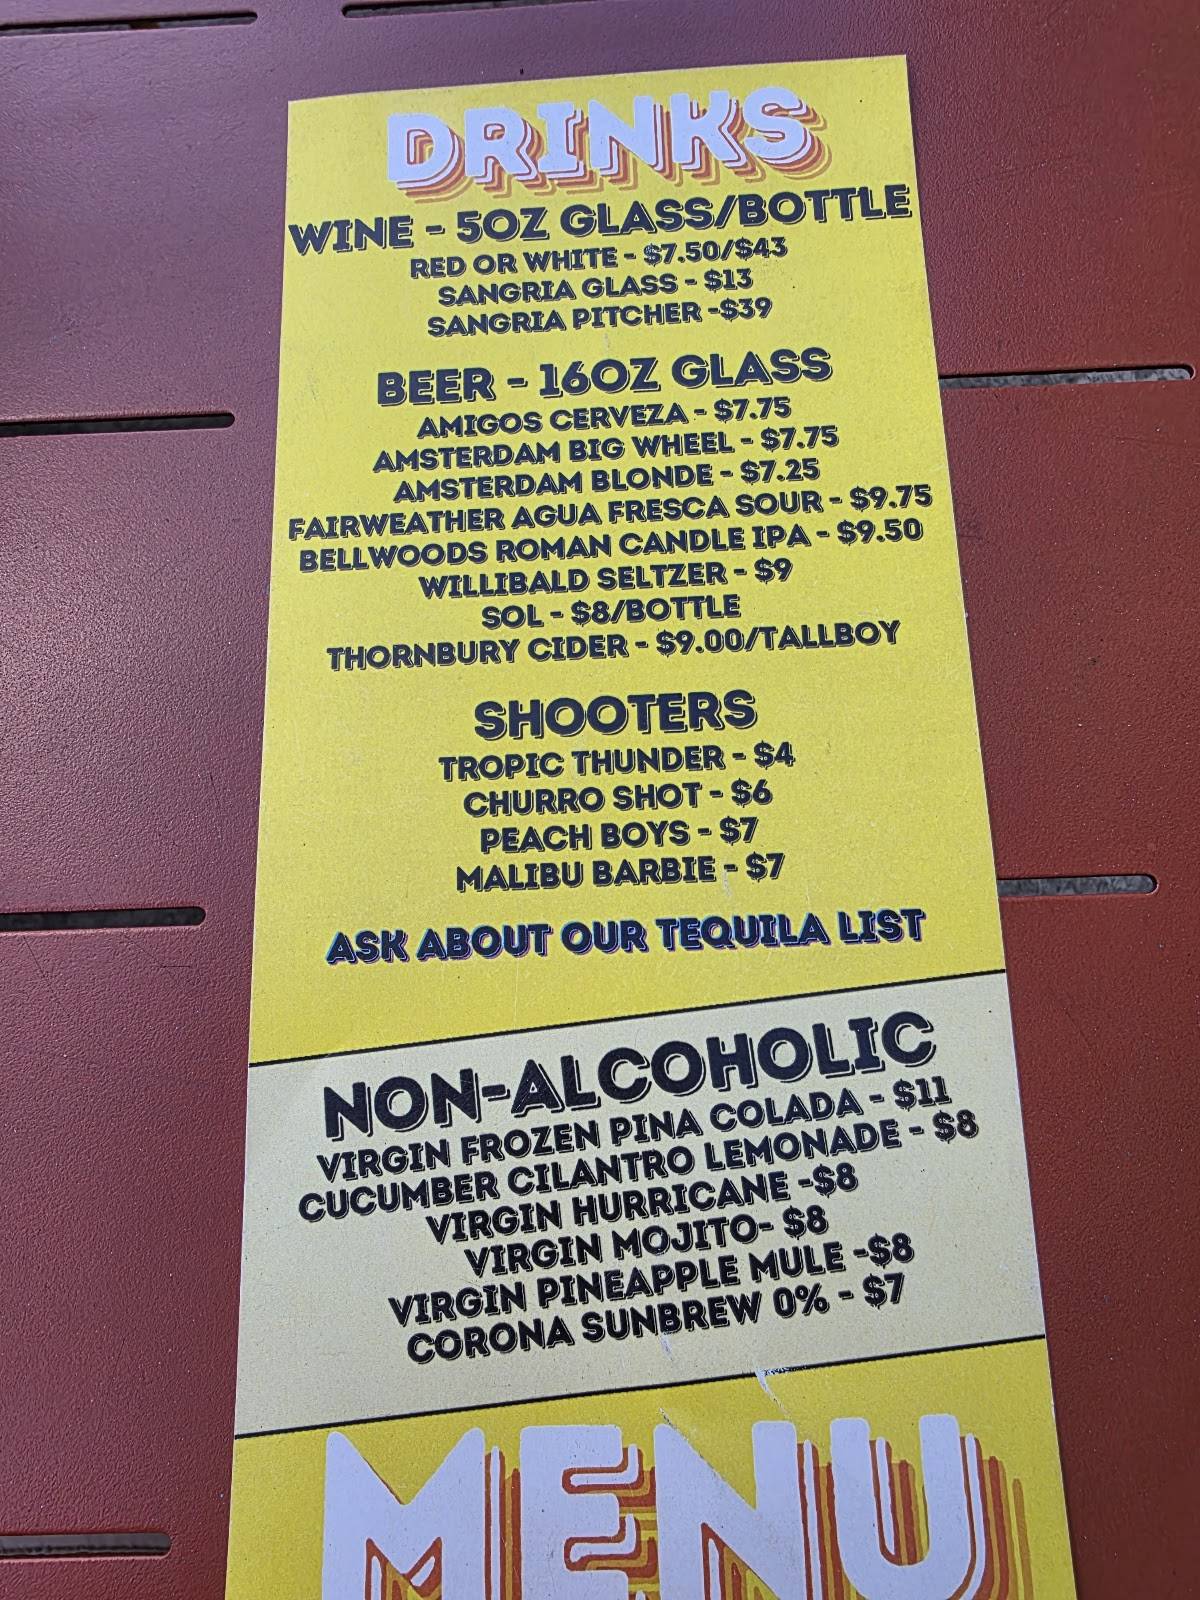 DRINKS
WINE - 5OZ GLASS/BOTTLE
RED OR WHITE - $7.50/$43
SANGRIA GLASS - $13
SANGRIA PITCHER -$39
BEER - 16OZ GLASS
AMIGOS CERVEZA - $7.75
AMSTERDAM BIG WHEEL - $7.75
AMSTERDAM BLONDE - $7.25
FAIRWEATHER AGUA FRESCA SOUR - $9.75
BELLWOODS ROMAN CANDLE IPA - $9.50
WILLIBALD SELTZER - $9
SOL - $8/BOTTLE
THORNBURY CIDER - $9.00/TALLBOY
SHOOTERS
TROPIC THUNDER - $4
CHURRO SHOT - $6
PEACH BOYS - $7
MALIBU BARBIE - $7
ASK ABOUT OUR TEQUILA LIST
NON-ALCOHOLIC
VIRGIN FROZEN PINA COLADA - $11
CUCUMBER CILANTRO LEMONADE - $8
VIRGIN HURRICANE -$8
VIRGIN MOJITO- $8
VIRGIN PINEAPPLE MULE -$8
CORONA SUNBREW 0% - $7
MENU